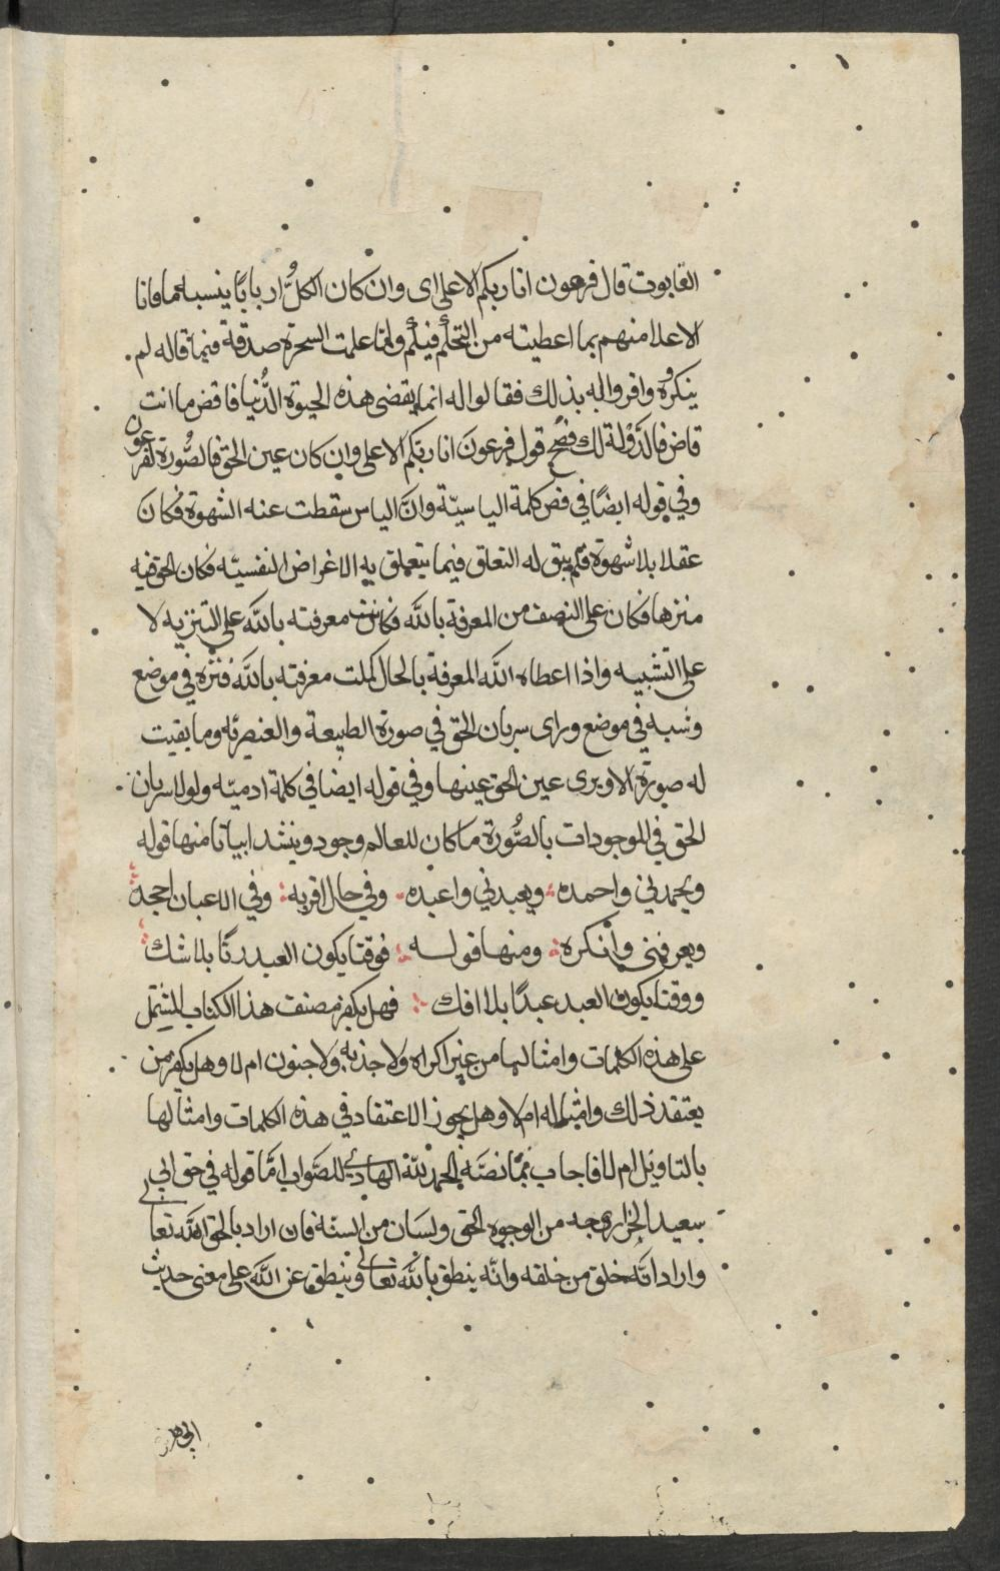 القابوت قال فرعون انا ربكم الاعلى اى وان كان الكلُّ اربابًا ينسبة ما فانا
الاعلا منهم بما اعطيته من التحكّم فيكم ولما علمت السحرة صدقة فيما قاله لم
ينكروه واقروا له بذلك فقالوا له انما يقضى هذه الحيوة الدُّنيا فاقض ما انت
قاض فالدَّوْلة لك فصحّ قول فرعونَ انا ربّكم الاعلى وان كان عين الحق فالصُّورة لفرعون
وفي قوله ايضًا في فص كلمة الياسيّة وانَّ الياس سقطت عنه الشهوة فكان
عقلا بلا شهوة فلم يبق له التعلق فيما يتعملق به الاغراض النفسيّه فكان الحق فيه
منزها فكان على النصف من المعرفة بالله فكانت معرفته بالله على التنزيه لا
على التشبيه واذا اعطاه الله المعرفة بالحال كملت معرفته بالله فنزه في موضع
وشبه في موضع وراى سريان الحق في صورة الطبيعة والعنصريّه وما بقيت
له صورة الا ويرى عين الحق عينها وفي قوله ايضا في كلمة ادميّه ولولا سريان
الحق في الموجودات بالصُّورة ما كان للعالم وجود وينشد ابياتا منها قوله
ويحمدني واحمده ويعبدني واعبده وفي حال اقربه وفي الاعيان اجحده
ويعرفني وأنكره ومنها قوله فوقتا يكون العبد ربًا بلا شك
ووقتا يكون العبد عبدًا بلا افك فهل يكفر مصنف هذا الكتاب المشتمل
على هذه الكلمات وامثالها من غير اكراه ولا جذبه ولا جنون ام لا وهل يكفر من
يعتقد ذلك وامثاله ام لا وهل يجوز الاعتقاد في هذه الكلمات وامثالها
بالتاويل ام لا فاجاب بما نصّه الحمد لله الهادي للصّواب امّا قوله في حق ابي
سعيد الخزاز وجه من الوجوه الحق ولسَان من السنّة فان اراد بالحق الله تعالى
واراد انّه خلق من خلقه وانّه ينطق بالله تعالى وينطق عز الله على معنى حديث